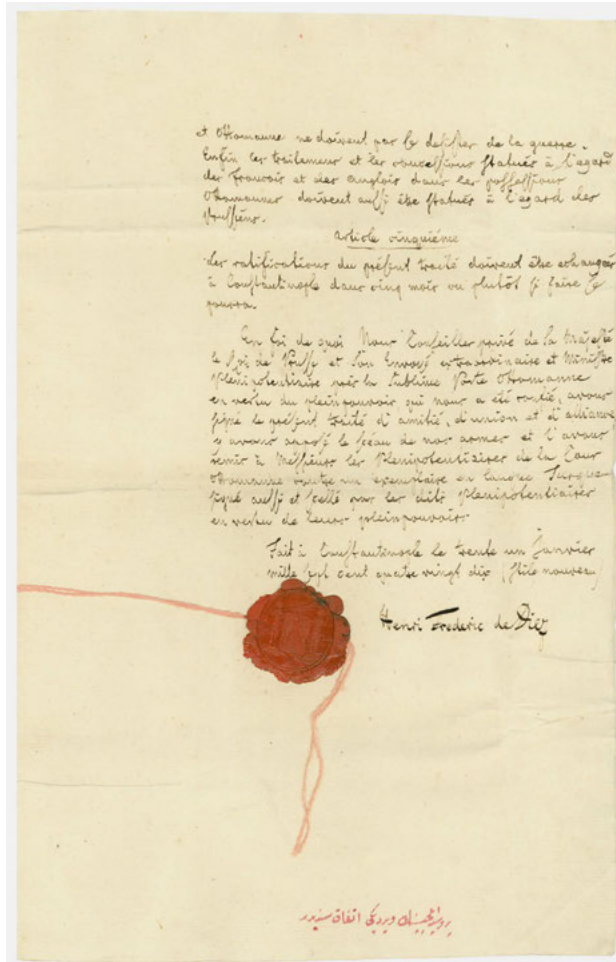 et Ottomanne ne doivent pas se desister de la guerre.
Enfin les traitemens et les concessions statués à l'égard
des François et des Anglois dans les possessions
Ottomannes doivent aussi être statués à l'égard des
Prussiens.
Article cinquiéme
Les ratifications du présent traité doivent être echangées
à Constantinople dans cinq mois ou plutôt si faire se
pourra.
En foi de quoi Nous Conseiller privé de Sa Majesté
le Roi de Prusse et Son Envoyé extraordinaire et Ministre
Plenipotentiaire près la Sublime Porte Ottomanne
en vertu du pleinpouvoir, qui nous a été confié, avons
signé le présent traité d'amitié, d'union et d'alliance
y avons apposé le sceau de nos armes et l'avons
remis à Messieurs les Plenipotentiaires de la Cour
Ottomanne contre un exemplaire en langue Turque
signé aussi et scellé par les dits Plenipotentiaires
en vertu de leurs pleinpouvoirs.
Fait à Constantinople le trente un Janvier
mille sept cent quatre vingt dix (stile nouveau)
Henri Frederic de Diez
ويرديكى اتفاق سنديدر